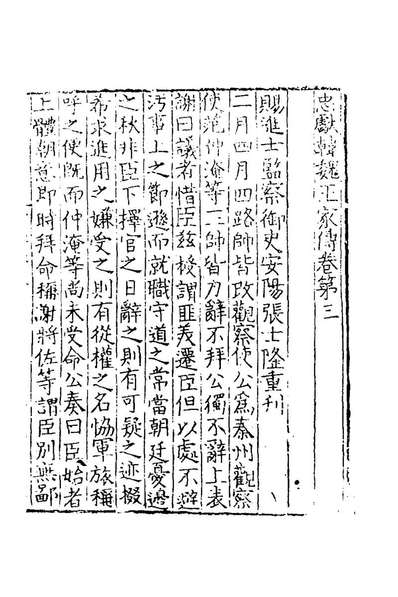 忠獻韓魏王家傳卷第三
賜進士監察御史安陽張士隆重刊
二月四月四路帥皆改觀察使公爲秦州觀察
使范仲淹等三帥皆力辭不拜公獨不辭上表
謝曰議者惜臣玆授謂匪義遷臣但以處不避
汚事上之節遜而就職守道之常當朝廷憂邊
之秋非臣下擇官之日辭之則有可疑之迹掇
希求進用之嫌受之則有從權之名協軍旅稱
呼之便旣而仲淹等尚未受命公奏曰臣始者
上體朝意即時拜命稱謝將佐等謂臣別無鄙